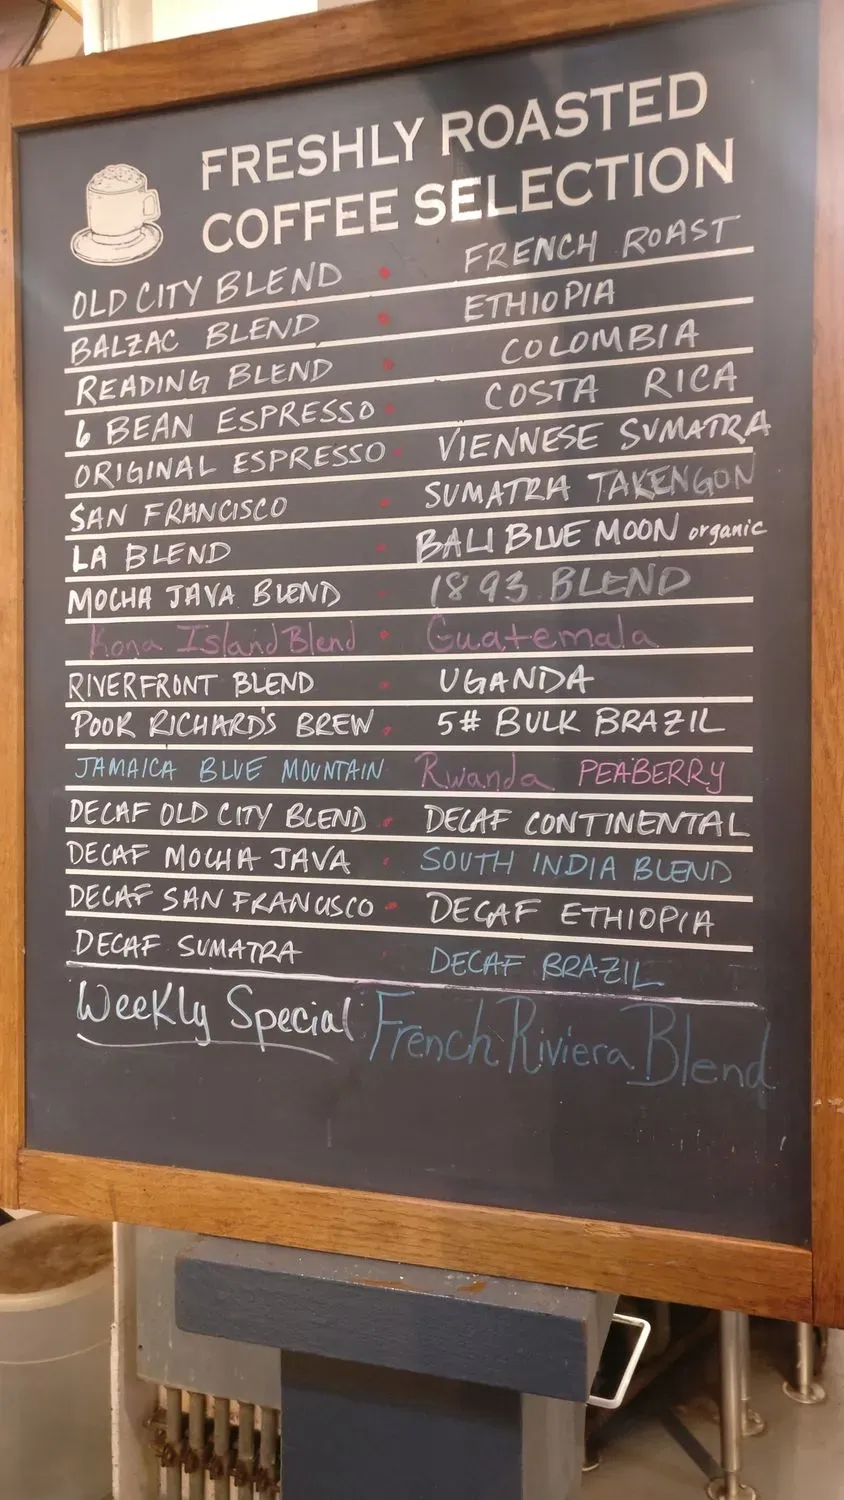 FRESHLY ROASTED
COFFEE SELECTION
OLD CITY BLEND • FRENCH ROAST
BALZAC BLEND • ETHIOPIA
READING BLEND • COLOMBIA
6 BEAN ESPRESSO • COSTA RICA
ORIGINAL ESPRESSO • VIENNESE SUMATRA
SAN FRANCISCO • SUMATRA TAKENGON
LA BLEND • BALI BLUE MOON organic
MOCHA JAVA BLEND • 1893 BLEND
Kona Island Blend • Guatemala
RIVERFRONT BLEND • UGANDA
POOR RICHARD'S BREW • 5# BULK BRAZIL
JAMAICA BLUE MOUNTAIN Rwanda PEABERRY
DECAF OLD CITY BLEND • DECAF CONTINENTAL
DECAF MOCHA JAVA • SOUTH INDIA BLEND
DECAF SAN FRANCISCO • DECAF ETHIOPIA
DECAF SUMATRA DECAF BRAZIL
Weekly Special French Riviera Blend